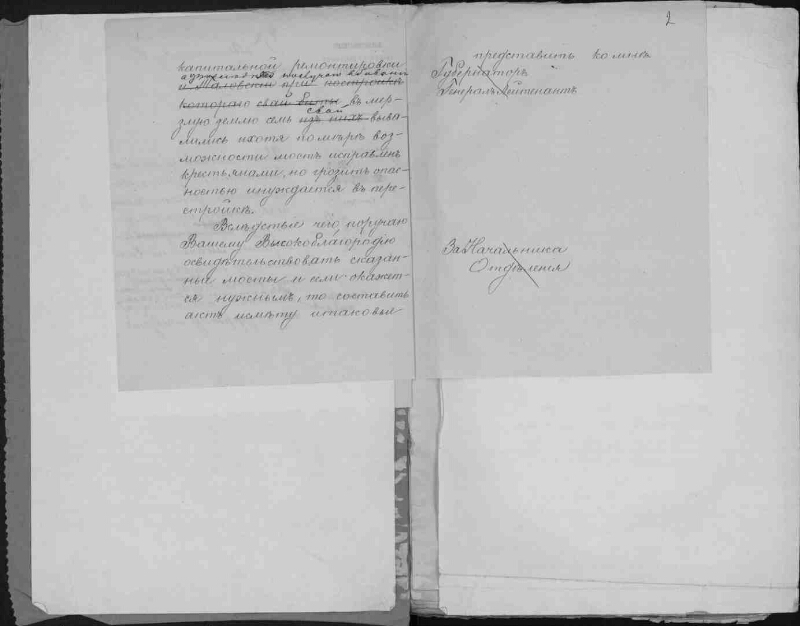 капитальной ремонтировки
и Паловский при постройкѣ
котораго сваи были въ мер-
свай
злую землю семь изъ нихъ выва-
лились и хотя по мѣрѣ воз-
можности мостъ исправленъ
крестьянами, но грозитъ опас-
ностью и нуждается въ пере-
стройкѣ.
Вслѣдствіе чего, поручаю
Вашему Высокоблагородію
освидѣтельствовать сказан-
ные мосты и если окажет-
ся нужнымъ, то составить
актъ и смѣту и таковыя
2
представить ко мнѣ
Губернаторъ
Генералъ-Лейтенантъ
За Начальника
Отдѣленія